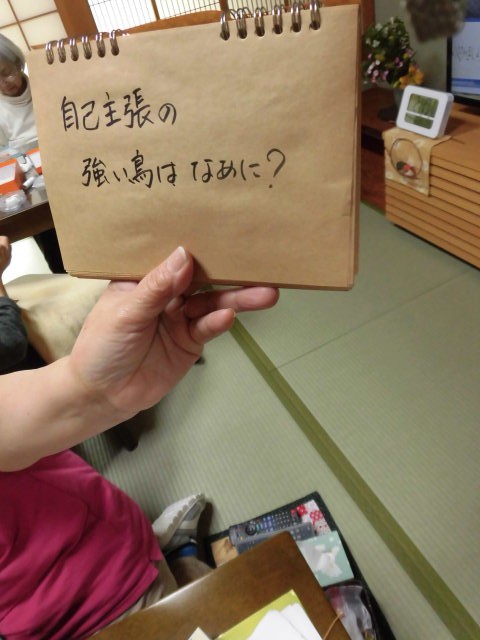 自己主張の
強い鳥はなめに?